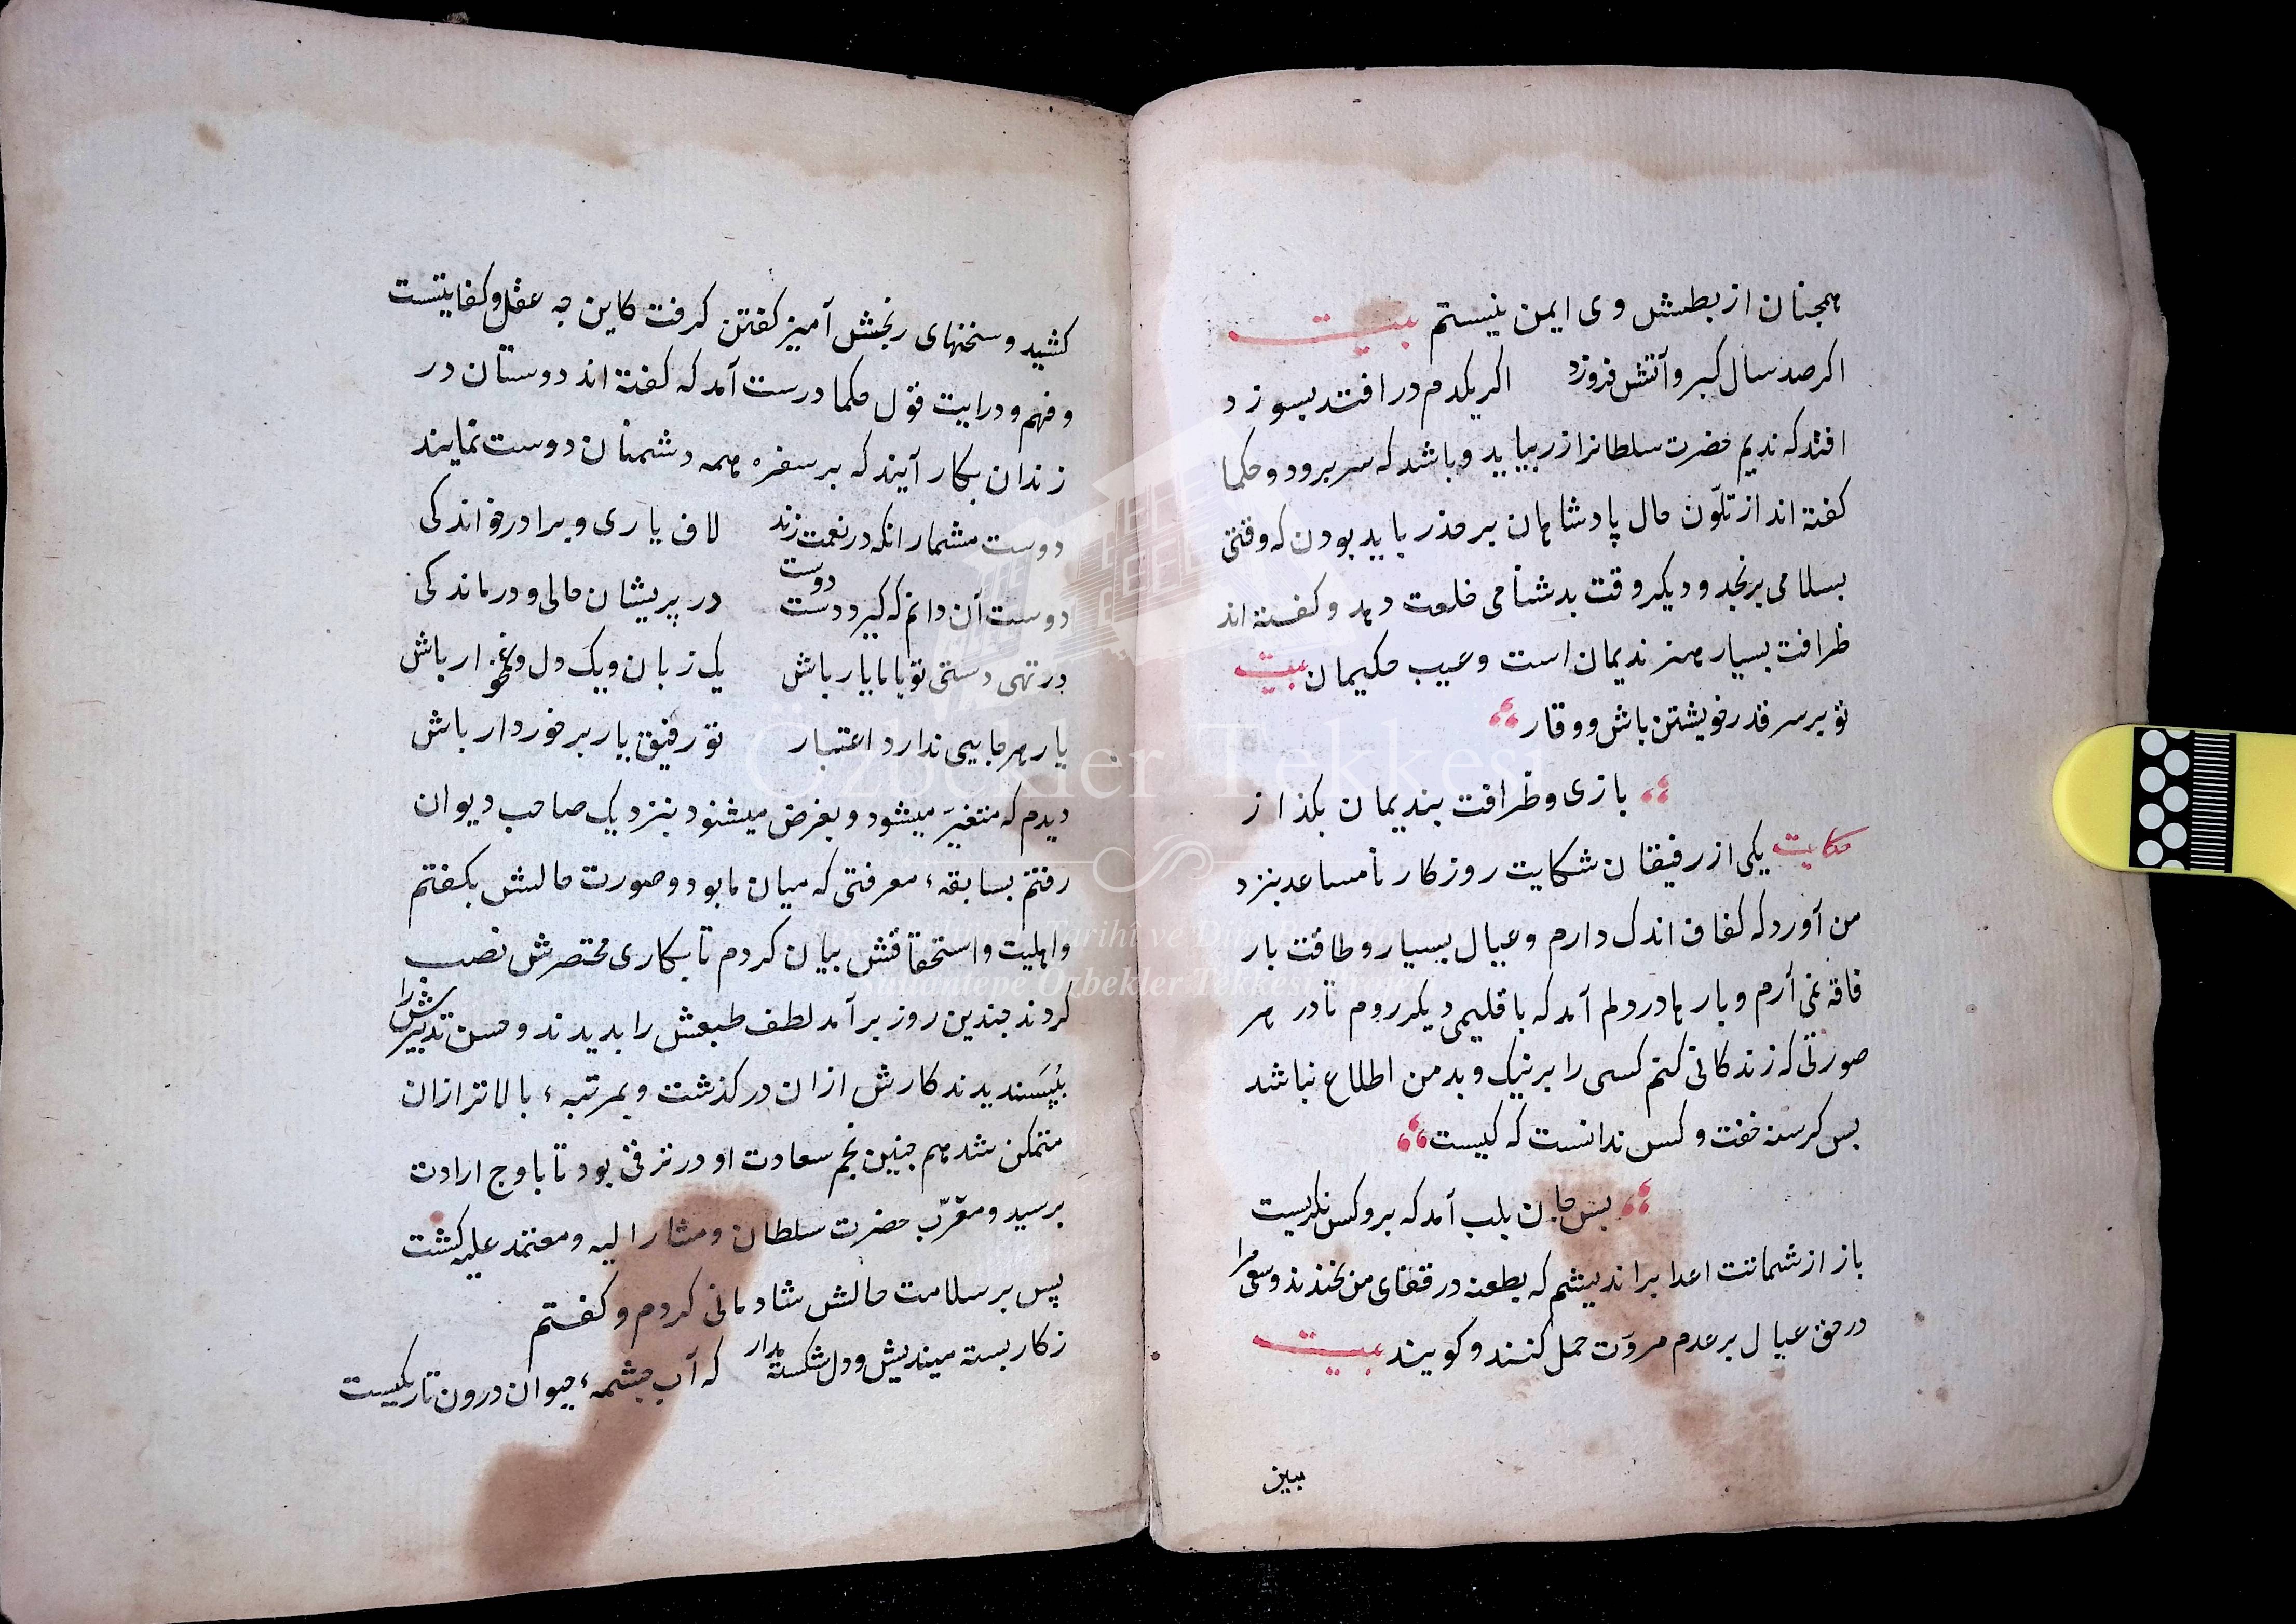 همجنان از بطش وی ایمن نیستم بیت
اکر صد سال کبر و آتش فروزد اکر یکدم در افتد بسوزد
افتد که ندیم حضرت سلطانرا زر بیاید و باشد که سر برود و حکما
کفته اند از تلوّن حال پادشاهان بر حذر باید بودن که وقتی
بسلامی برنجد و دیکر وقت بدشنامی خلعت دهد و کفته اند
ظرافت بسیار هنر ندیمان است و عیب حکیمان بیت
تو بر سر قدر خویشتن باش و وقار
بازی و ظرافت بندیمان بکذار
حکایت یکی از رفیقان شکایت روزکار نامساعد بنزد
من آورد که کفاف اندک دارم و عیال بسیار و طاقت بار
فاقه نمی آرم و بارها در دلم آمد که باقلیمی دیکر روم تا در هر
صورتی که زندکانی کنم کسی را بر نیک و بد من اطلاع نباشد
بس کرسنه خفت و کس ندانست که کیست
بس جان بلب آمد که برو کس نکریست
باز از شماتت اعدا براندیشم که بطعنه در قفای من بخندند و سعی مرا
در حق عیال بر عدم مروّت حمل کنند و کویند بیت
ببین
کشید و سخنهای رنجش آمیز کفتن کرفت کاین چه عقل و کفایتست
و فهم و درایت قول حکما درست آمد که کفته اند دوستان در
زندان بکار آیند که بر سفره همه دشمنان دوست نمایند
دوست مشمار انکه در نعمت زند لاف یاری و برادر خواندکی
دوست آن دانم که کیرد دست دوست در پریشان حالی و درماندکی
در تهی دستی تو با ما یار باش یک زبان و یک دل و غمخوار باش
یار هر جایی ندارد اعتبار تو رفیق یار برخوردار باش
دیدم که متغیّر میشود و بغرض میشنود بنزدیک صاحب دیوان
رفتم بسابقهء معرفتی که میان ما بود و صورت حالش بکفتم
و اهلیت و استحقاقش بیان کردم تا بکاری مختصرش نصب
کردند جندین روز برآمد لطف طبعش را بدیدند و حسن تدبیرش را
بپسندیدند کارش ازان در کذشت و بمرتبهء بالاتر ازان
متمکن شد هم جنین نجم سعادت او در ترقی بود تا باوج ارادت
برسید و مقرّب حضرت سلطان و مشار الیه و معتمد علیه کشت
پس بر سلامت حالش شادمانی کردم و کفتم
زکار بسته میندیش و دل شکسته مدار که آب چشمهء حیوان درون تاریکیست